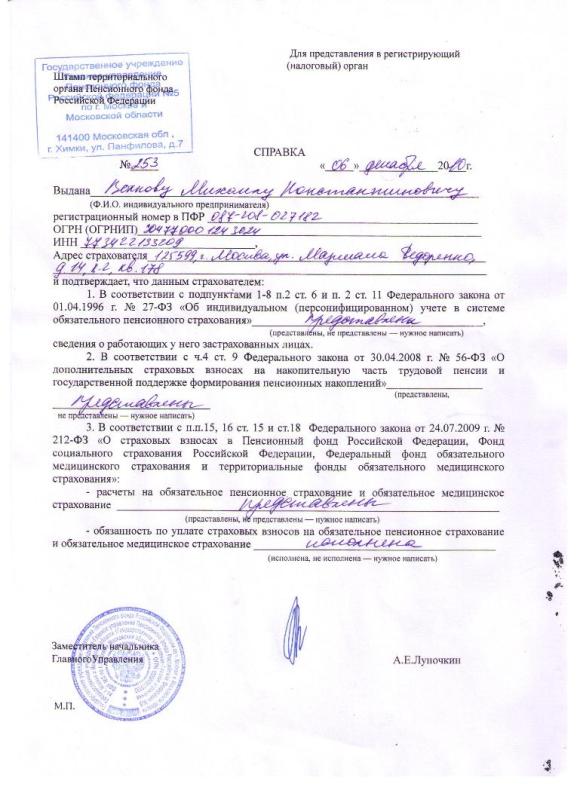 Для представления в регистрирующий
(налоговый) орган
Государственное учреждение
Штамп территориального
органа Пенсионного фонда
Российской Федерации №5
по г. Москве и
Московской области
141400 Московская обл.,
г. Химки, ул. Панфилова, д.7
СПРАВКА
№ 253 « 06 » декабря 2010г.
Выдана Михаилу Константиновичу
(Ф.И.О. индивидуального предпринимателя)
регистрационный номер в ПФР 087-208-027182
ОГРН (ОГРНИП)
ИНН 773422133209,
Адрес страхователя 125599, г. Москва, ул. Маршала Федоренко,
д. 14, к-2, кв. 178
и подтверждает, что данным страхователем:
1. В соответствии с подпунктами 1-8 п.2 ст. 6 и п. 2 ст. 11 Федерального закона от
01.04.1996 г. № 27-ФЗ «Об индивидуальном (персонифицированном) учете в системе
обязательного пенсионного страхования» представлены,
(представлены, не представлены — нужное написать)
сведения о работающих у него застрахованных лицах.
2. В соответствии с ч.4 ст. 9 Федерального закона от 30.04.2008 г. № 56-ФЗ «О
дополнительных страховых взносах на накопительную часть трудовой пенсии и
государственной поддержке формирования пенсионных накоплений»
(представлены,
представлены
не представлены — нужное написать)
3. В соответствии с п.п.15, 16 ст. 15 и ст.18 Федерального закона от 24.07.2009 г. №
212-ФЗ «О страховых взносах в Пенсионный фонд Российской Федерации, Фонд
социального страхования Российской Федерации, Федеральный фонд обязательного
медицинского страхования и территориальные фонды обязательного медицинского
страхования»:
- расчеты на обязательное пенсионное страхование и обязательное медицинское
страхование представлены
(представлены, не представлены — нужное написать)
- обязанность по уплате страховых взносов на обязательное пенсионное страхование
и обязательное медицинское страхование исполнена
(исполнена, не исполнена — нужное написать)
Заместитель начальника
ГлавногоУправления А.Е.Луночкин
М.П.